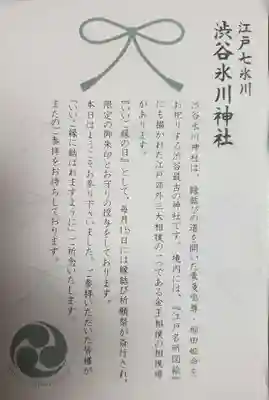 江戸七氷川
渋谷氷川神社
渋谷氷川神社は、縁結びの道を開いた素戔嗚尊・稲田姫命を
お祀りする渋谷最古の神社です。境内には、『江戸名所図絵』
にも描かれた江戸郊外三大相撲の一つである金王相撲の相撲場
があります。
『いいご縁の日』として、毎月15日には縁結び祈願祭が斎行され、
限定の御朱印とお守りの授与をしております。
本日はようこそお参り下さいました。ご参拝いただいた皆様が
「いいご縁に結ばれますように」ご祈念いたします。
またのご参拝をお待ちしております。